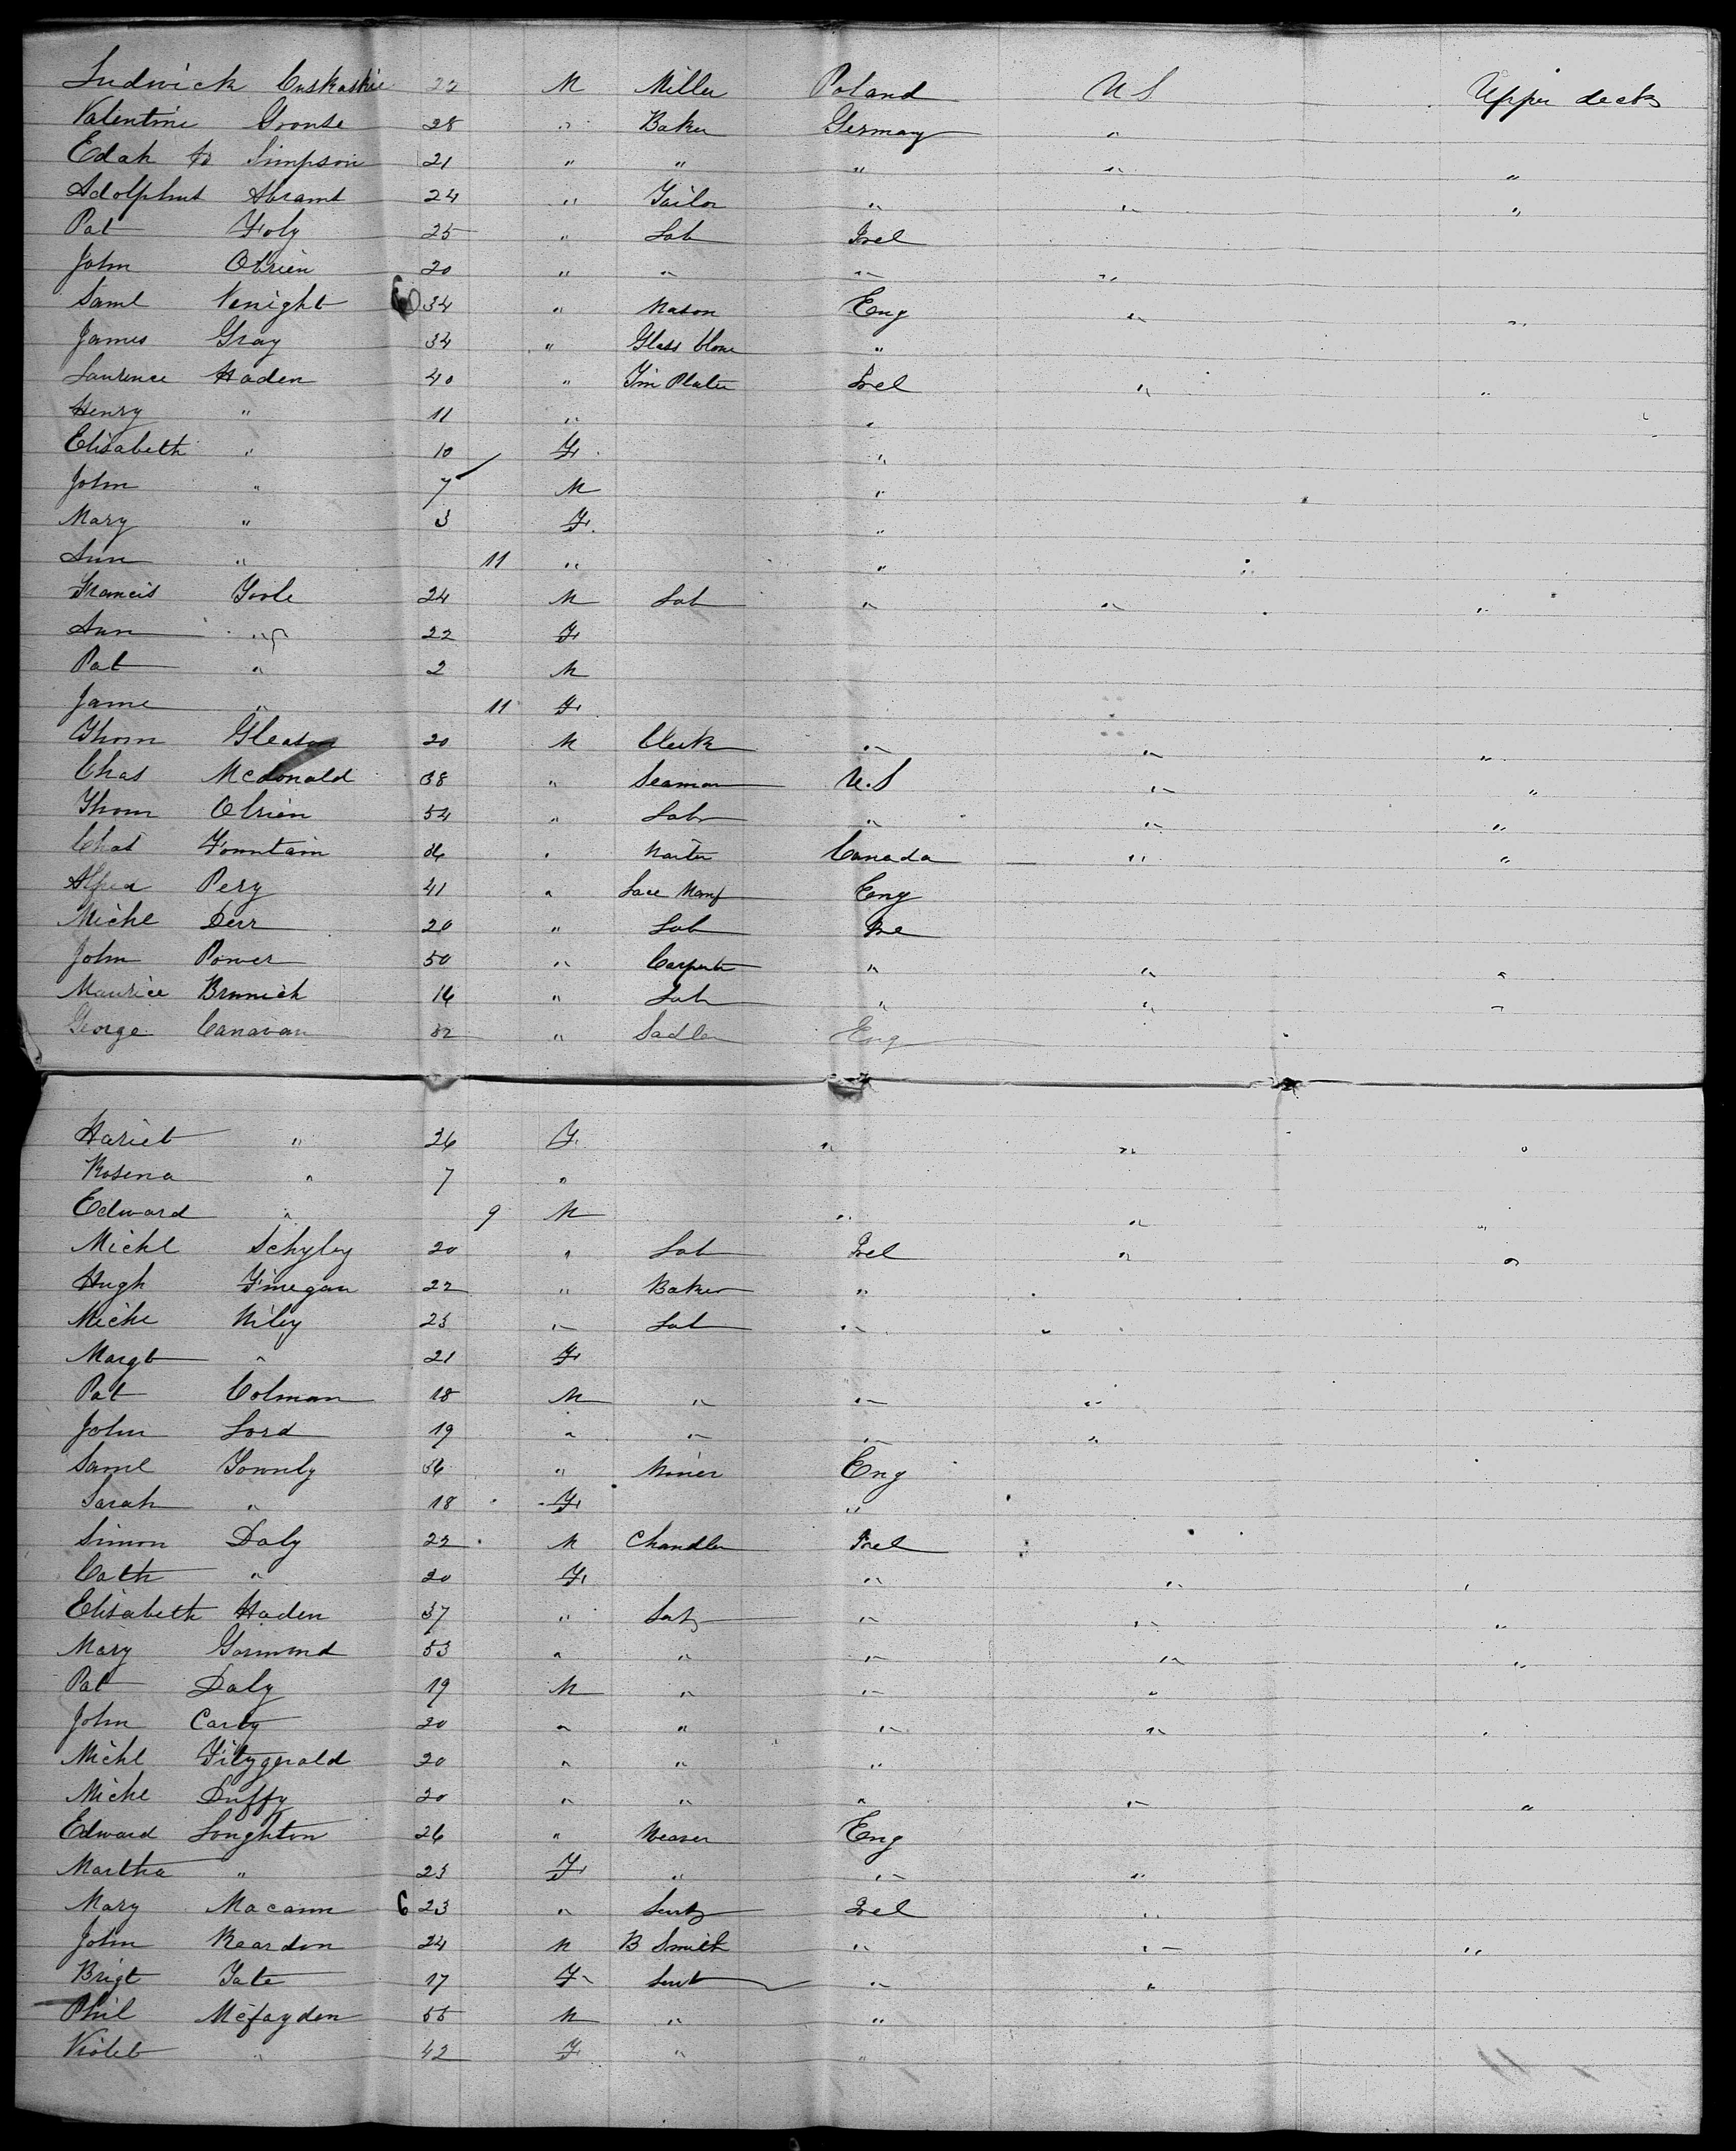 Ludwick 22 M Miller Poland U S Upper deck
Valentine Gronte 28 " Baker Germany "
Edah Simpson 21 " " " " "
Adolphus Abrams 24 " Tailor " " "
Pat Foly 25 " Lab Irel
John Obrien 20 " " " "
Saml Venight 34 " Mason Eng " "
James Gray 34 " Glass blower "
Laurence Haden 40 " Tin Plater Irel " "
Henry " 11 " "
Elisabeth " 10 F "
John " 7 M "
Mary " 3 F "
Ann " 11 " "
Francis Toole 24 M Lab " " "
Ann " 22 F
Pat " 2 M
Jane " 11 F
Thom Gleason 20 M Clerk " " "
Chas Mcdonald 38 " Seaman U.S " "
Thom Obrien 54 " Lab " " "
Chas Fountain 36 " Canada " "
Alfred Pery 41 " Lace Manf Eng
Michl Derr 20 " Lab Ire
John Power 50 " Carpent " " "
Maurice Brunick 16 " Lab " " "
George Canavan 32 " Sadler Eng
Hariet " 26 F " " "
Rosena " 7 "
Edward " 9 M " " "
Michl Schyley 20 " Lab Irel " "
Hugh Finegan 22 " Baker "
Michl Riley 23 " Lab " "
Margt " 21 F
Pat Colman 18 M " " "
John Lord 19 " " " "
Saml Townly 36 " Miner Eng
Sarah " 18 F "
Simon Daly 22 M Chandler Irel "
Cath " 20 F " "
Elisabeth Haden 37 " " " "
Mary Gormond 53 " " " " "
Pat Daly 19 M " " "
John Carty 20 " " " "
Michl Fitzgerald 20 " " "
Michl Duffy 20 " " " " "
Edward Loughton 26 " Weaver Eng
Martha " 23 F " " "
Mary Macann 6 23 " Servt Irel "
John Reardon 24 M B Smith " " "
Brigt Tate 17 F Servt " "
Phil Mcfayden 55 M " "
Violet " 42 F " "